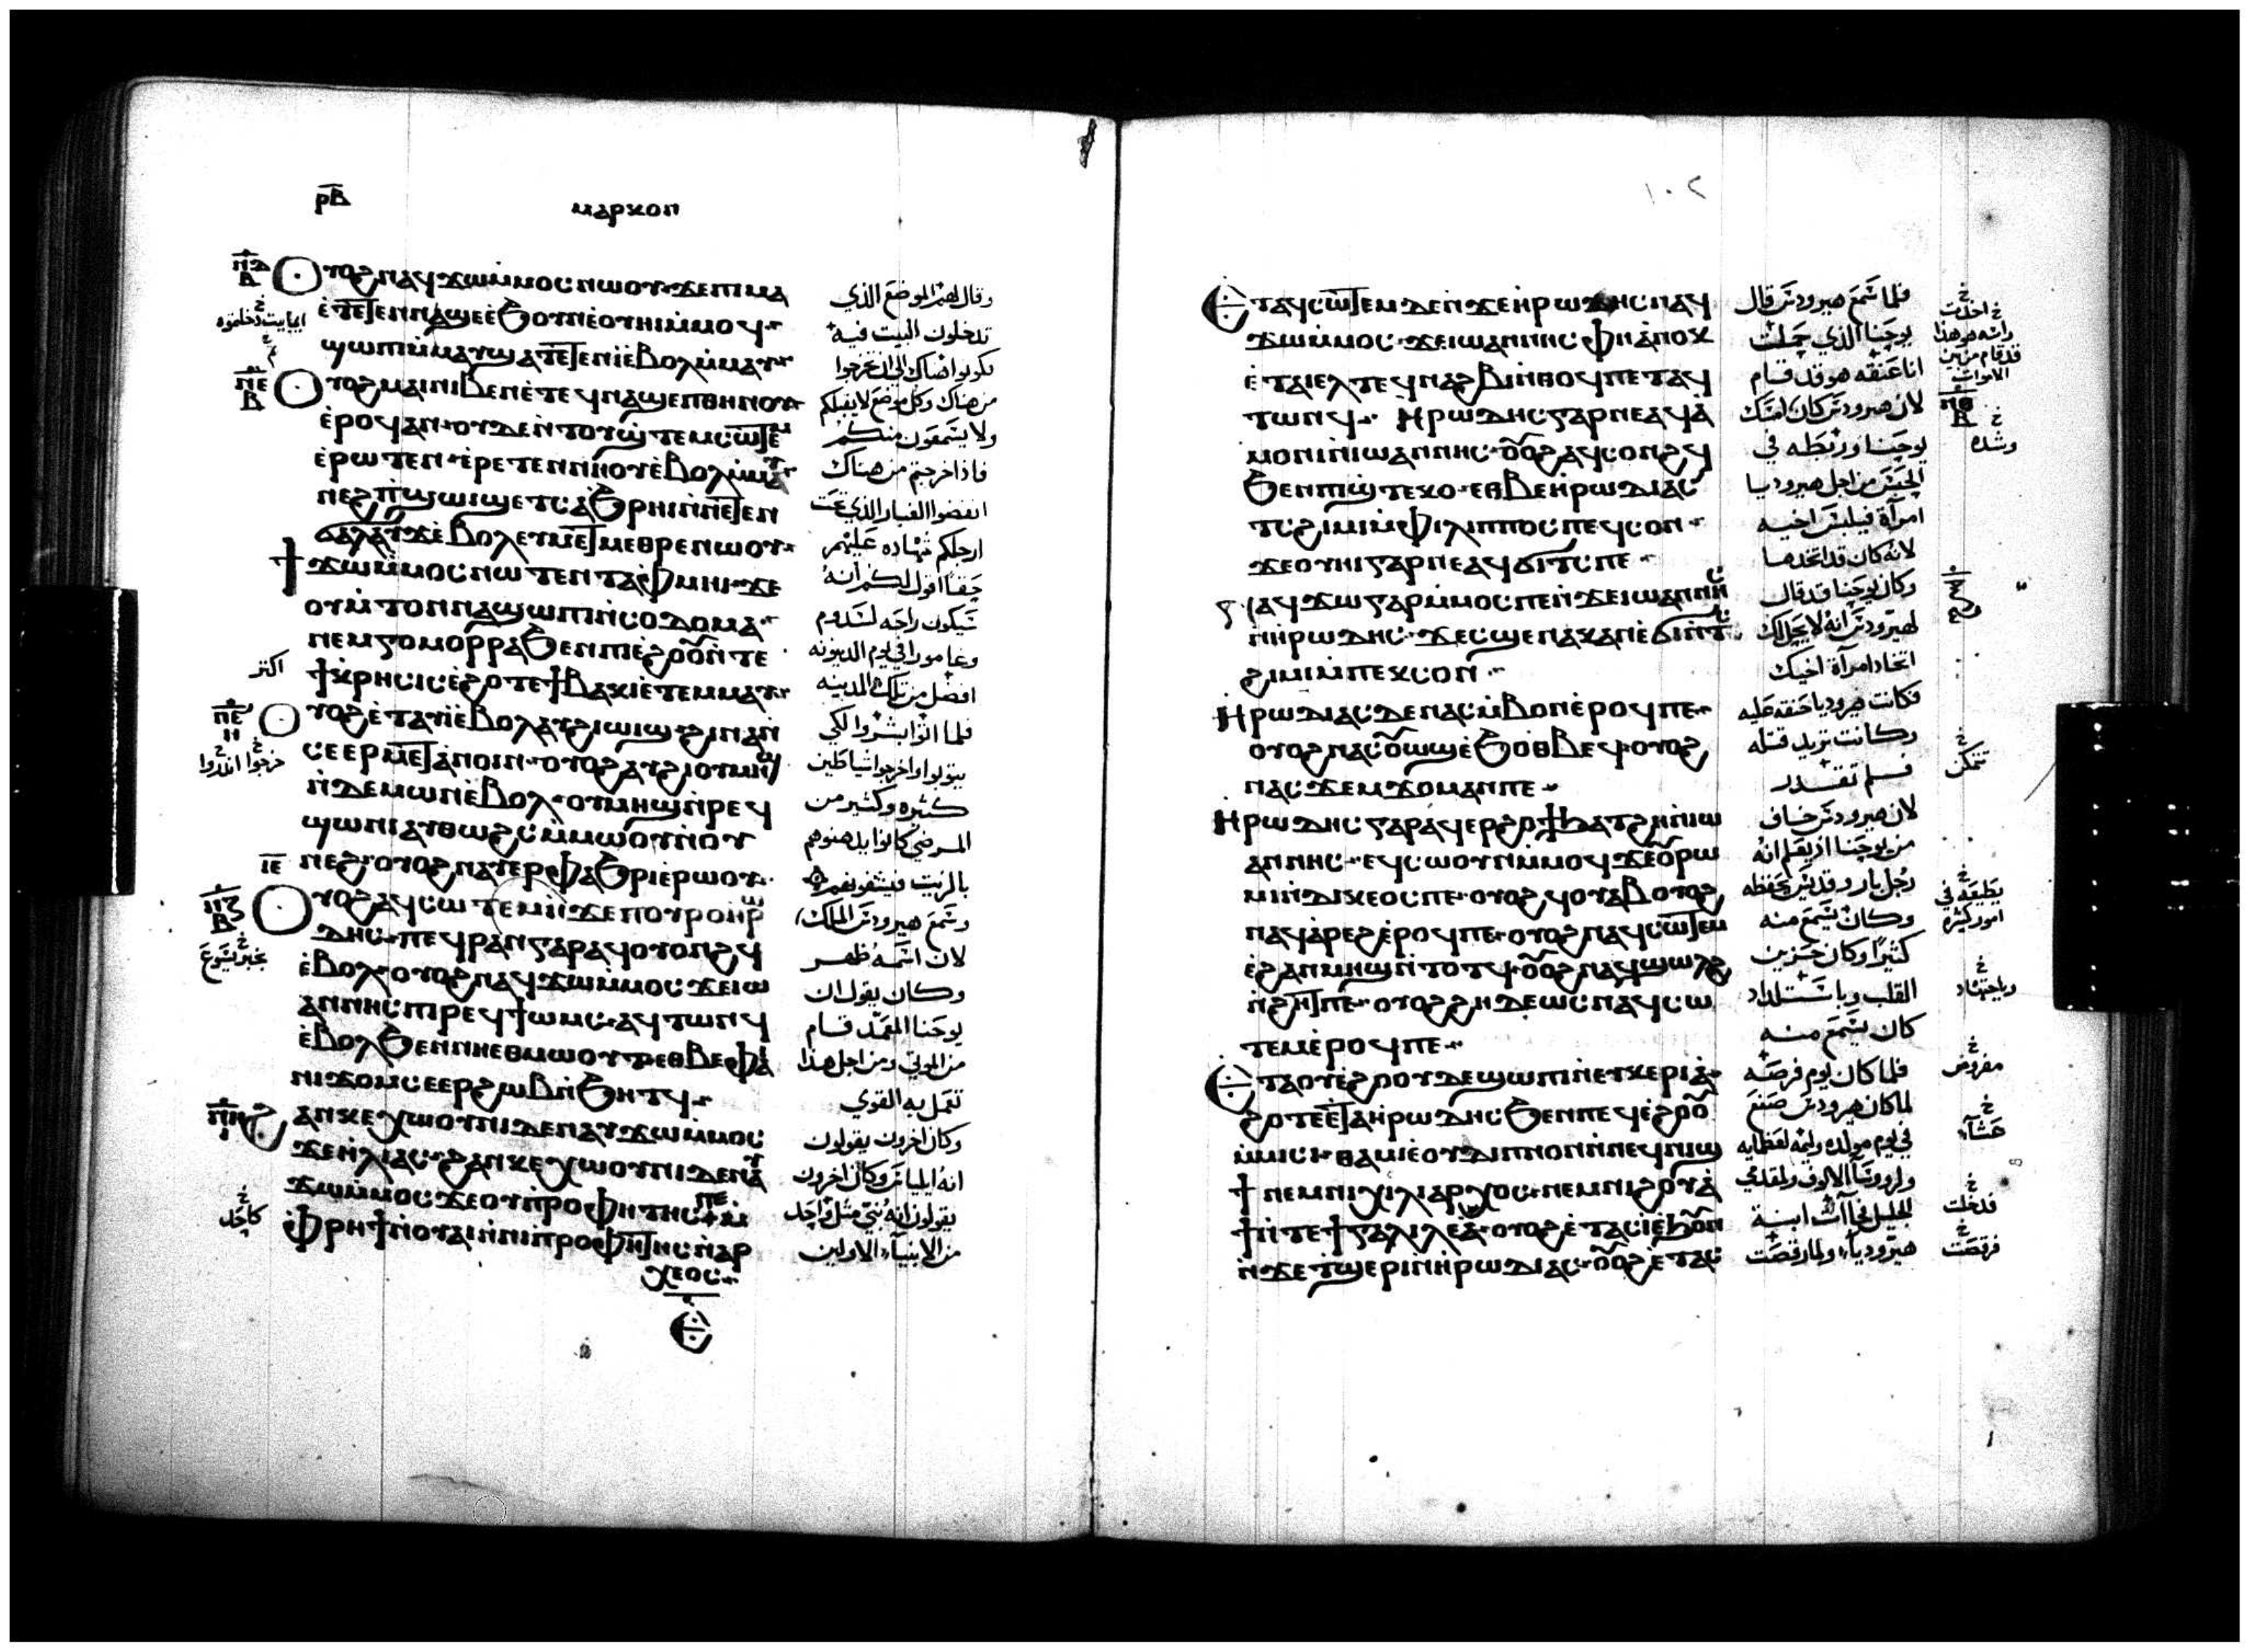 ⲣ̅ⲃ̅
ⲙⲁⲣⲕⲟⲛ
ⲟⲩⲟϩ ⲛⲁϥϫⲱ ⲙ̀ⲙⲟⲥ ⲛⲱⲟⲩ ϫⲉ ⲡⲓⲙⲁ
ⲉ̀ⲧⲉⲧⲉⲛⲛⲁϣⲉ ⲉ̀ϧⲟⲩⲛ ⲉ̀ⲟⲩⲏⲓ ⲙ̀ⲙⲟϥ
ϣⲱⲡⲓ ⲙ̀ⲙⲁⲩ ϣⲁⲧⲉⲧⲉⲛⲓ̀ ⲉ̀ⲃⲟⲗ ⲙ̀ⲙⲁⲩ
ⲟⲩⲟϩ ⲙⲁⲓ ⲛⲓⲃⲉⲛ ⲉ̀ⲧⲉϥⲛⲁϣⲉⲡ ⲑⲏⲛⲟⲩ
ⲉ̀ⲣⲟϥ ⲁⲛ ⲟⲩⲇⲉ ⲛ̀ⲧⲟⲩϣ̀ⲧⲉⲙⲥⲱⲧⲉⲙ
ⲉ̀ⲣⲱⲧⲉⲛ ⲉ̀ⲣⲉⲧⲉⲛⲛⲏⲟⲩ ⲉ̀ⲃⲟⲗ ⲙ̀ⲙⲁⲩ
ⲛⲉϩ ⲡⲓϣⲱⲓϣ ⲉⲧⲥⲁϧⲣⲏⲓ ⲛ̀ⲛⲉⲧⲉⲛ
ϭⲁⲗⲁⲩϫ ⲉ̀ⲃⲟⲗ ⲉⲩⲙⲉⲧⲙⲉⲑⲣⲉ ⲛⲱⲟⲩ
ϯϫⲱ ⲙ̀ⲙⲟⲥ ⲛⲱⲧⲉⲛ ⲧⲁⲫⲙⲏⲓ ϫⲉ
ⲟⲩⲙ̀ⲧⲟⲛ ⲛⲁϣⲱⲡⲓ ⲛ̀ⲥⲟⲇⲟⲙⲁ
ⲛⲉⲙ ⲅⲟⲙⲟⲣⲣⲁ ϧⲉⲛ ⲡⲓⲉ̀ϩⲟⲟⲩ ⲛ̀ⲧⲉ
ϯⲕⲣⲏⲥⲓⲥ ⲉ̀ϩⲟⲧⲉ ϯⲃⲁⲕⲓ ⲉ̀ⲧⲉⲙⲙⲁⲩ
ⲟⲩⲟϩ ⲉ̀ⲧⲁⲩⲓ̀ ⲉ̀ⲃⲟⲗ ⲁⲩϩⲓⲱⲓϣ ϩⲓⲛⲁ ⲛ̀
ⲥⲉⲉⲣⲙⲉⲧⲁⲛⲟⲓⲛ ⲟⲩⲟϩ ⲁⲩϩⲓⲟⲩⲙⲏϣ
ⲛ̀ⲇⲉⲙⲱⲛ ⲉ̀ⲃⲟⲗ ⲟⲩⲙⲏϣ ⲛ̀ⲣⲉϥ
ϣⲱⲛⲓ ⲁⲩⲑⲱϩⲥ ⲙ̀ⲙⲱⲟⲩ ⲛ̀ⲟⲩ
ⲛⲉϩ ⲟⲩⲟϩ ⲛⲁⲩⲉⲣⲫⲁϧⲣⲓ ⲉ̀ⲣⲱⲟⲩ
ⲟⲩⲟϩ ⲁϥⲥⲱⲧⲉⲙ ⲛ̀ϫⲉ ⲡⲟⲩⲣⲟ ⲏⲣⲱ
ⲇⲏⲥ ⲡⲉϥⲣⲁⲛ ⲅⲁⲣ ⲁϥⲟⲩⲟⲛϩϥ
ⲉ̀ⲃⲟⲗ ⲟⲩⲟϩ ⲛⲁϥϫⲱ ⲙ̀ⲙⲟⲥ ϫⲉ ⲓⲱ
ⲁⲛⲛⲏⲥ ⲡⲓⲣⲉϥϯⲱⲙⲥ ⲁϥⲧⲱⲛϥ
ⲉ̀ⲃⲟⲗ ϧⲉⲛ ⲛⲏⲉⲑⲙⲱⲟⲩⲧ ⲉⲑⲃⲉ ⲫⲁⲓ
ⲛⲓϫⲟⲙ ⲥⲉⲉⲣϩⲱⲃ ⲛ̀ϧⲏⲧϥ
ϩⲁⲛⲕⲉⲭⲱⲟⲩⲛⲓ ⲇⲉ ⲛⲁⲩϫⲱ ⲙ̀ⲙⲟⲥ
ϫⲉ ⲏⲗⲓⲁⲥ ϩⲁⲛⲕⲉⲭⲱⲟⲩⲛⲓ ⲇⲉ ⲛⲁⲩ
ϫⲱ ⲙ̀ⲙⲟⲥ ϫⲉ ⲟⲩⲡⲣⲟⲫⲏⲧⲏⲥ ⲡⲉ
ⲙ̀ⲫⲣⲏϯ ⲛ̀ⲟⲩⲁⲓ ⲛ̀ⲛⲓⲡⲣⲟⲫⲏⲧⲏⲥ ⲛ̀ⲁⲣ
ⲭⲉⲟⲥ
وقال لهم الموضع الذي
تدخلون البيت فيه
كونوا هناك الى ان تخرجوا
من هناك وكل موضع لا يقبلكم
ولا يسمعون منكم
فاذا خرجتم من هناك
انفضوا الغبار الذي تحت
ارجلكم شهاده عليهم
حقا اقول لكم انه
سيكون راحه لسدوم
وغامورا في يوم الدينونه
افضل من تلك المدينه
فلما اتوا بشروا لكي
يتوبوا واخرجوا شياطين
كثيره وكثير من
المرضي كانوا يدهنوهم
بالزيت فيشفونهم
وسمع هيرودس الملك
لان اسمه ظهر
وكان يقول ان
يوحنا المعمد قام
من الموتي ومن اجل هذا
تعمل به القوي
وكان اخرون يقولون
انه ايلياس وكان اخرون
يقولون انه نبي مثل احد
من الانبياء الاولين
١٠٢
ⲉ̀ⲧⲁϥⲥⲱⲧⲉⲙ ⲇⲉ ⲛ̀ϫⲉ ⲏⲣⲱⲇⲏⲥ ⲛⲁϥ
ϫⲱ ⲙ̀ⲙⲟⲥ ϫⲉ ⲓⲱⲁⲛⲛⲏⲥ ⲫⲏ ⲁ̀ⲛⲟⲕ
ⲉ̀ⲧⲁⲓⲉⲗ ⲧⲉϥⲛⲁϩⲃⲓ ⲛ̀ⲑⲟϥ ⲡⲉⲧⲁϥ
ⲧⲱⲛϥ ⲏⲣⲱⲇⲏⲥ ⲅⲁⲣ ⲛⲉⲁϥⲁ̀
ⲙⲟⲛⲓ ⲛ̀ⲓⲱⲁⲛⲛⲏⲥ ⲟⲩⲟϩ ⲁϥⲥⲟⲛϩϥ
ϧⲉⲛ ⲡⲓϣ̀ⲧⲉⲕⲟ ⲉⲑⲃⲉ ⲏⲣⲱⲇⲓⲁⲥ
ⲧⲥϩⲓⲙⲓ ⲙ̀ⲫⲓⲗⲓⲡⲡⲟⲥ ⲡⲉϥⲥⲟⲛ
ϫⲉ ⲟⲩⲏⲓ ⲅⲁⲣ ⲛⲉⲁϥϭⲓⲧⲥ ⲡⲉ
ⲛⲁϥϫⲱ ⲅⲁⲣ ⲙ̀ⲙⲟⲥ ⲡⲉ ⲛ̀ϫⲉ ⲓⲱⲁⲛⲛⲏⲥ
ⲛ̀ⲏⲣⲱⲇⲏⲥ ϫⲉ ⲥϣⲉ ⲛⲁⲕ ⲁⲛ ⲉ̀ϭⲓ ⲛ̀ⲧ
ϩⲓⲙⲓ ⲙ̀ⲡⲉⲕⲥⲟⲛ
ⲏⲣⲱⲇⲓⲁⲥ ⲇⲉ ⲛⲁⲥⲙ̀ⲃⲟⲛ ⲉ̀ⲣⲟϥ ⲡⲉ
ⲟⲩⲟϩ ⲛⲁⲥⲟⲩⲱϣ ⲉ̀ϧⲟⲑⲃⲉϥ ⲟⲩⲟϩ
ⲛⲁⲥϫⲉⲙϫⲟⲙ ⲁⲛ ⲡⲉ
ⲏⲣⲱⲇⲏⲥ ⲅⲁⲣ ⲁϥⲉⲣϩⲟϯ ϧⲁⲧϩⲏ ⲛ̀ⲓⲱ
ⲁⲛⲛⲏⲥ ⲉϥⲥⲱⲟⲩⲛ ⲙ̀ⲙⲟϥ ϫⲉ ⲟⲩⲣⲱ
ⲙⲓ ⲛ̀ⲇⲓⲕⲉⲟⲥ ⲡⲉ ⲟⲩⲟϩ ϥⲟⲩⲁⲃ ⲟⲩⲟϩ
ⲛⲁϥⲁ̀ⲣⲉϩ ⲉ̀ⲣⲟϥ ⲡⲉ ⲟⲩⲟϩ ⲛⲁϥⲥⲱⲧⲉⲙ
ⲉ̀ϩⲁⲛⲙⲏϣ ⲛ̀ⲧⲟⲧϥ ⲟⲩⲟϩ ⲛⲁϥϣⲱⲗϩ
ⲛ̀ϩⲏⲧ ⲡⲉ ⲟⲩⲟϩ ϩⲏⲇⲉⲱⲥ ⲛⲁϥⲥⲱ
ⲧⲉⲙ ⲉ̀ⲣⲟϥ ⲡⲉ
ⲉⲧⲁ ⲟⲩⲉ̀ϩⲟⲟⲩ ⲇⲉ ϣⲱⲡⲓ ⲛ̀ⲉⲩⲕⲉⲣⲓⲁ
ϩⲟⲧⲉ ⲉ̀ⲧⲁ ⲏⲣⲱⲇⲏⲥ ϧⲉⲛ ⲡⲉϥⲉ̀ϩⲟⲟⲩ
ⲙ̀ⲙⲓⲥⲓ ⲑⲁⲙⲓⲉ̀ ⲟⲩⲇⲓⲡⲛⲟⲛ ⲛ̀ⲛⲉϥⲛⲓϣ
ϯ ⲛⲉⲙ ⲛⲓⲭⲓⲗⲓⲁⲣⲭⲟⲥ ⲛⲉⲙ ⲛⲓϩⲟⲩⲁ̀
ϯ ⲛ̀ⲧⲉ ϯⲅⲁⲗⲓⲗⲉⲁ ⲟⲩⲟϩ ⲉ̀ⲧⲁⲥⲓ̀ ⲉ̀ϧⲟⲩⲛ
ⲛ̀ϫⲉ ⲧϣⲉⲣⲓ ⲛ̀ⲏⲣⲱⲇⲓⲁⲥ ⲟⲩⲟϩ ⲉ̀ⲧⲁⲥ
فلما سمع هيرودس قال
يوحنا الذي
انا عنقه هو قد قام
لان هيرودس كان امسك
يوحنا وربطه في
الحبس من اجل هيروديا
امرأة فيلبس اخيه
لانه كان قد اتخدها
وكان يوحنا قد قال
لهيرودس انه لا يحل لك
اتخاد امرأة اخيك
فكانت هيروديا حنقه عليه
وكانت تريد قتله
فلم تقدر
لان هيرودس خاف
من يوحنا اذ يعلم انه
رجل بار وقديس يحفظه
وكان يسمع منه
كثيرًا وكان حزين
القلب وباستلداد
كان يسمع منه
فلما كان يوم فرصه
لما كان هيرودس صنع
في يوم مولده وليمه لعظمايه
ولرووسا الالوف ولمقدمي
الجليل فجاات ابنة
هيروديا ولما رقصت